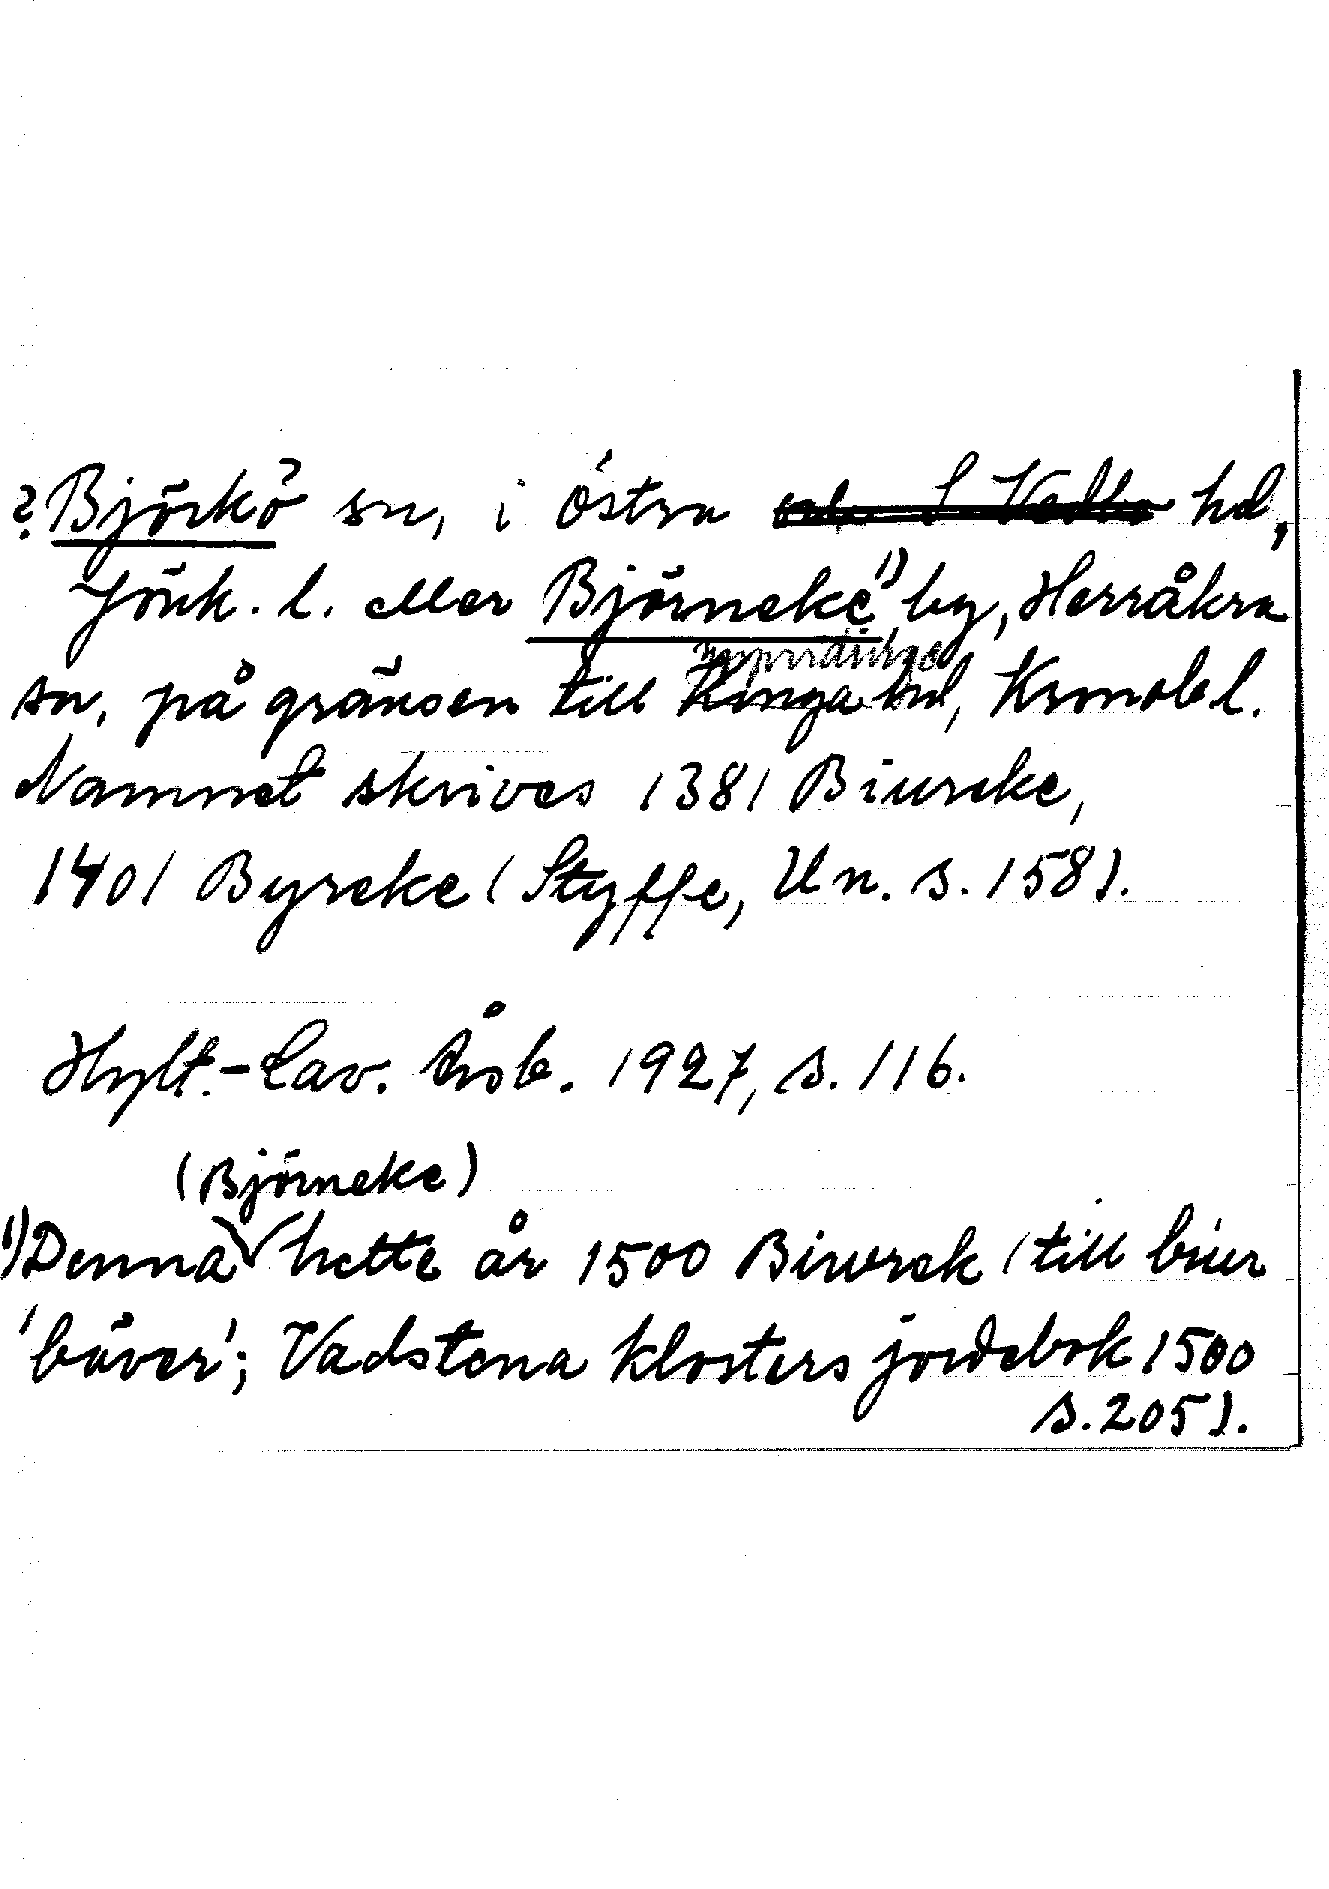 ? Björkö sn, i Östra och S Vedbo hd,
Jönk. l. eller Björneke 1) by, Herråkra
sn, på gränsen till Kinga hd, Kronob l.
Namnet skrives 1381 Biureke,
1401 Byreke (Styffe, Un. s. 158).
Hylt.-Cav. Årsb. 1927, s. 116.
(Björneke)
1) Denna hette år 1500 Biurek (till biur
'bäver'; Vadstena klosters jordebok 1500
s. 205).